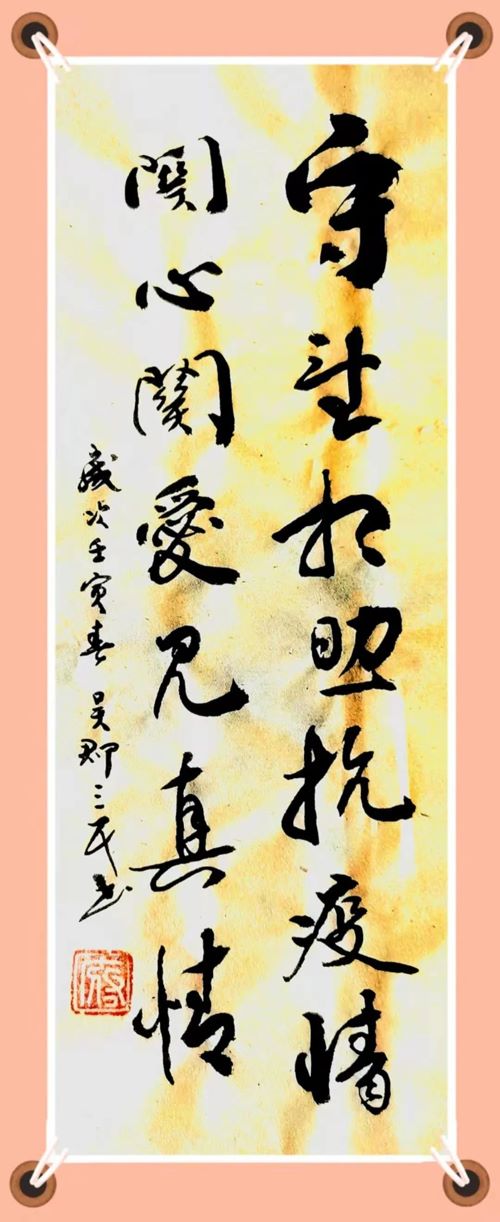 守望相助抗疫情
關心關愛見真情
歲次壬寅春 吴郡三民书